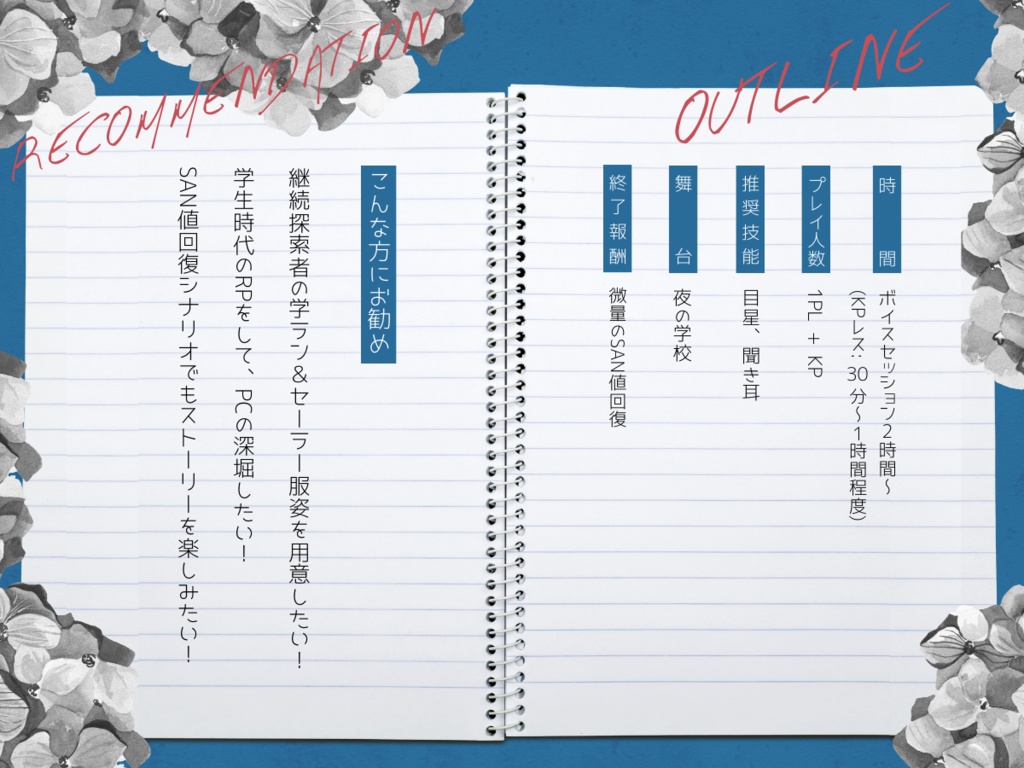 OUTLINE
時間
ボイスセッション2時間～
(KPレス：30分～1時間程度)
プレイ人数
1PL + KP
推奨技能
目星、聞き耳
舞台
夜の学校
終了報酬
微量のSAN値回復
RECOMMENDATION
こんな方にお勧め
継続探索者の学ラン＆セーラー服姿を用意したい！
学生時代のRPをして、PCの深堀したい！
SAN値回復シナリオでもストーリーを楽しみたい！